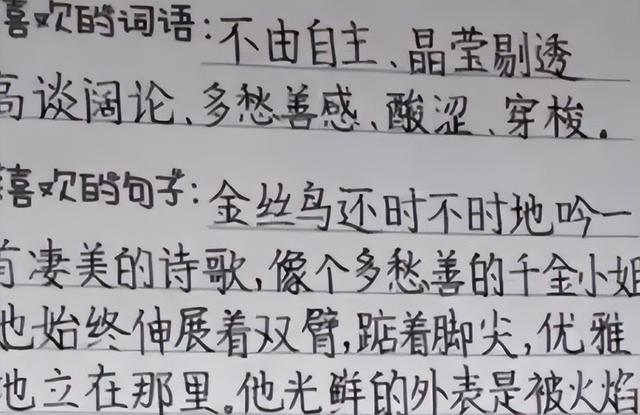 喜欢的词语:不由自主、晶莹剔透
高谈阔论、多愁善感、酸涩、穿梭。
喜欢的句子:金丝鸟还时不时地吟一
首凄美的诗歌,像个多愁善的千金小姐
他始终伸展着双臂,踮着脚尖,优雅
地立在那里。他光鲜的外表是被火焰